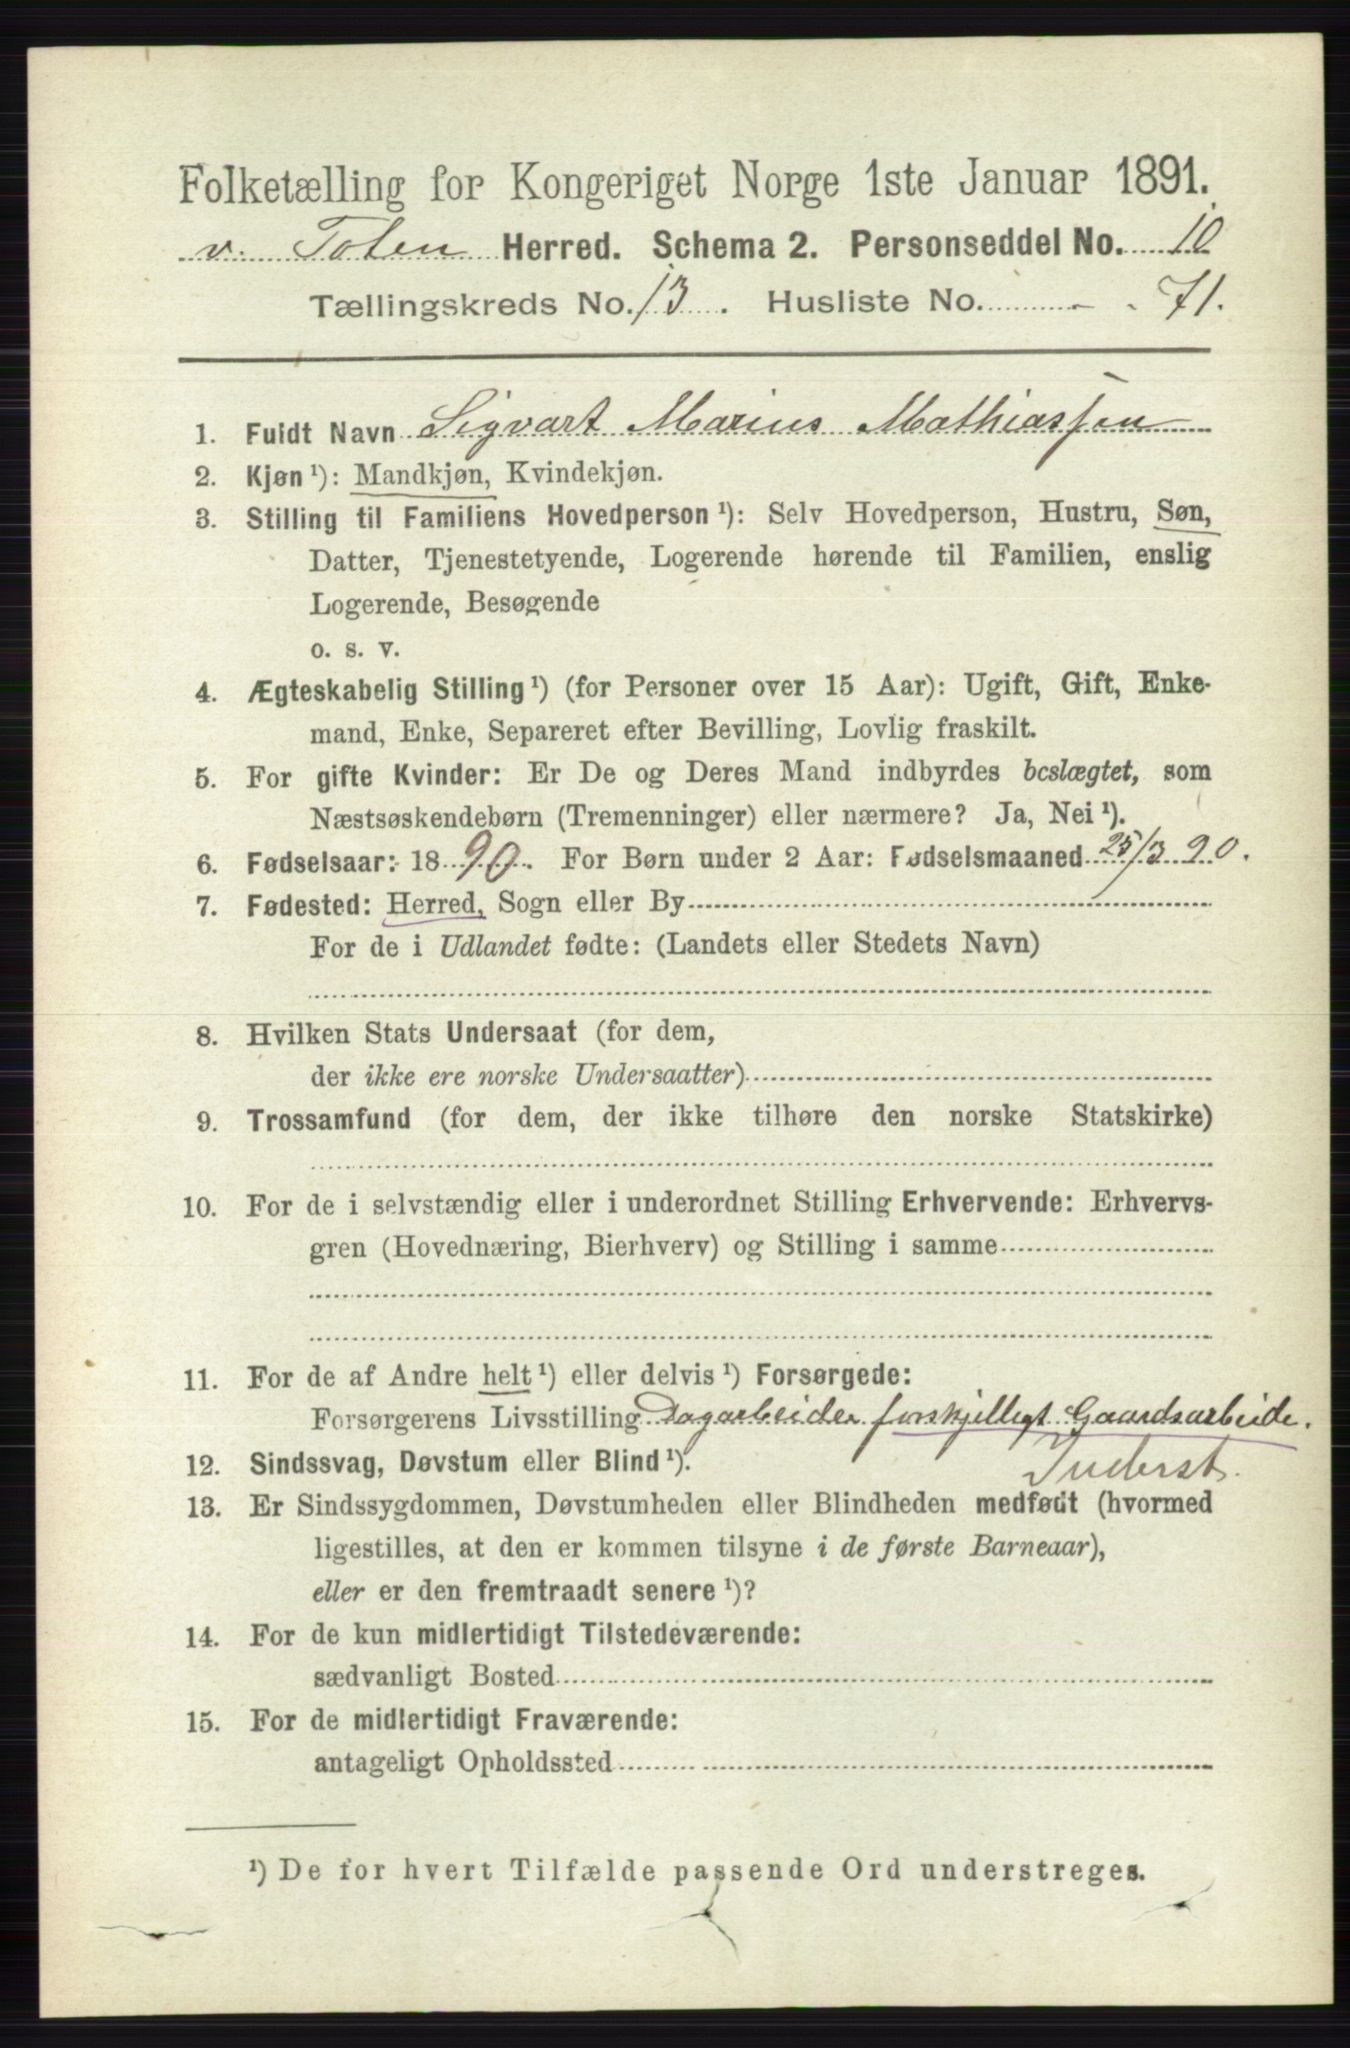 Folketælling for Kongeriget Norge 1ste Januar 1891.
v. Toten Herred. Schema 2. Personseddel No. 10
Tællingskreds No. 13. Husliste No. - 71.
1. Fuldt Navn Sigvart Marius Mathiassen
2. Kjøn ¹): Mandkjøn, Kvindekjøn.
3. Stilling til Familiens Hovedperson ¹): Selv Hovedperson, Hustru, Søn,
Datter, Tjenestetyende, Logerende hørende til Familien, enslig
Logerende, Besøgende
o. s. v.
4. Ægteskabelig Stilling ¹) (for Personer over 15 Aar): Ugift, Gift, Enke-
mand, Enke, Separeret efter Bevilling, Lovlig fraskilt.
5. For gifte Kvinder: Er De og Deres Mand indbyrdes beslægtet, som
Næstsøskendebørn (Tremenninger) eller nærmere? Ja, Nei ¹).
6. Fødselsaar: 1890. For Børn under 2 Aar: Fødselsmaaned 25/3 90.
7. Fødested: Herred, Sogn eller By
For de i Udlandet fødte: (Landets eller Stedets Navn)
8. Hvilken Stats Undersaat (for dem,
der ikke ere norske Undersaatter)
9. Trossamfund (for dem, der ikke tilhøre den norske Statskirke)
10. For de i selvstændig eller i underordnet Stilling Erhvervende: Erhvervs-
gren (Hovednæring, Bierhverv) og Stilling i samme
11. For de af Andre helt ¹) eller delvis ¹) Forsørgede:
Forsørgerens Livsstilling Dagarbeider forskjelligt Gaardsarbeide.
12. Sindssvag, Døvstum eller Blind ¹). Inderst.
13. Er Sindssygdommen, Døvstumheden eller Blindheden medfødt (hvormed
ligestilles, at den er kommen tilsyne i de første Barneaar),
eller er den fremtraadt senere ¹)?
14. For de kun midlertidigt Tilstedeværende:
sædvanligt Bosted
15. For de midlertidigt Fraværende:
antageligt Opholdssted
¹) De for hvert Tilfælde passende Ord understreges.